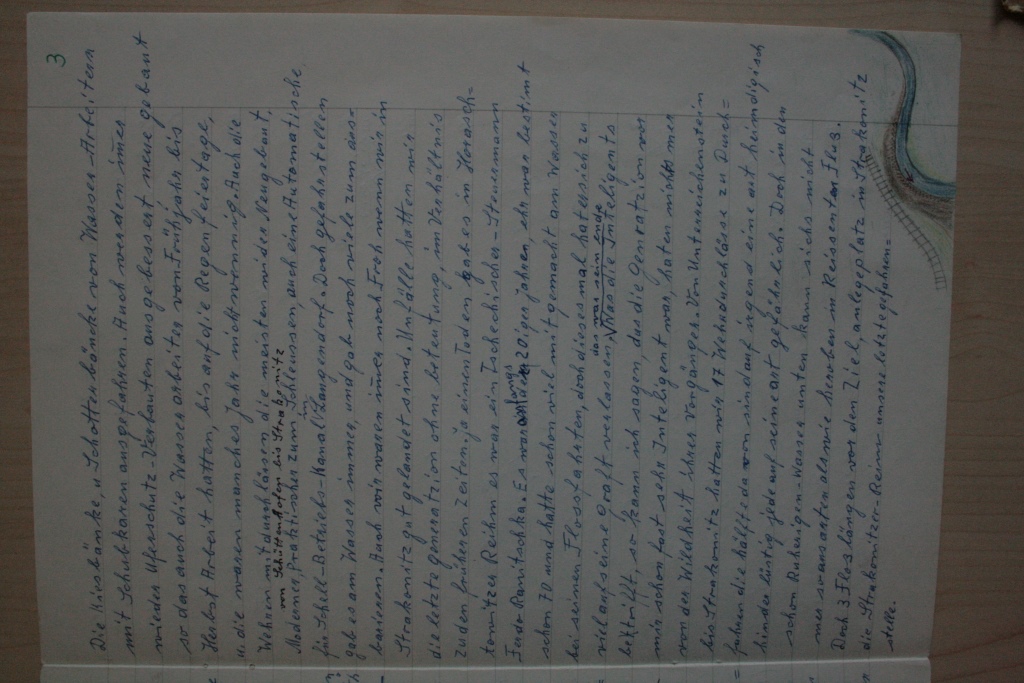 3
Die Kiesbänke, u Schotterbänke von Wasser-Arbeitern
mit Schubkaren ausgefahren. Auch werden imer
wieder Uferschutz-Verbauten ausgebessert neue gebaut
so das auch die Wasserarbeiter von Frühjahr bis
Herbst Arbeit hatten, bis auf die Regenfeiertage,
u. die waren manches Jahr nicht wennig. Auch die
Wehren mit durchlässen die meisten wieder Neugebaut,
von Schüttenhofen bis Strakonitz
Moderner, Praktischer zum Schleussen, auch eine Automatische
für Schell-Betriebs-Kanal in Langendorf. Doch gefahrstellen
gab es am Wasser immer, und gab noch viele zum aus-
basieren. Auch wir waren imer noch Froh wenn wir in
Strakonitz gut gelandet sind. Unfälle hatten wir
die letzte generation ohne beteutung, im Verhältnis
zu den früheren Zeiten. ja einen Toden gab es in Horasch=
towitzer Reihm es war ein Tschechischer-Steuermann
Ferda Ranitschka. Es war anfangs 20iger jahren, ehr war bestimt
schon 70 und hatte schon viel mit gemacht am Wasser
bei seinen Flossfahrten, doch dieses mal hat er sich zu
das war sein ende
viel auf seine graft verlassen, Was die Inteligents
betrifft, so kann ich sagen, das die Genration vor
mir schon fast sehr Inteligent war, haten nichts mer
von der Wildheit ihrer Vorgänger. Von Unterreichenstein
bis Strakonitz hatten wir 17 Wehrdurchlässe zu Durch=
fahren die hälfte davon sind auf ingend eine art heimdigisch
hinderlüstig jede auf seine art gefährlich. Doch in den
schon Ruheigen-Wasser unten kann sichs nicht
mer so ausarten als wie heroben im Reissenten Flus.
Doch 3 Floslängen vor den Ziel, anlegeplatz in Strakonitz
die Strakonitzer-Reim unsere letzte gefahren=
stelle.